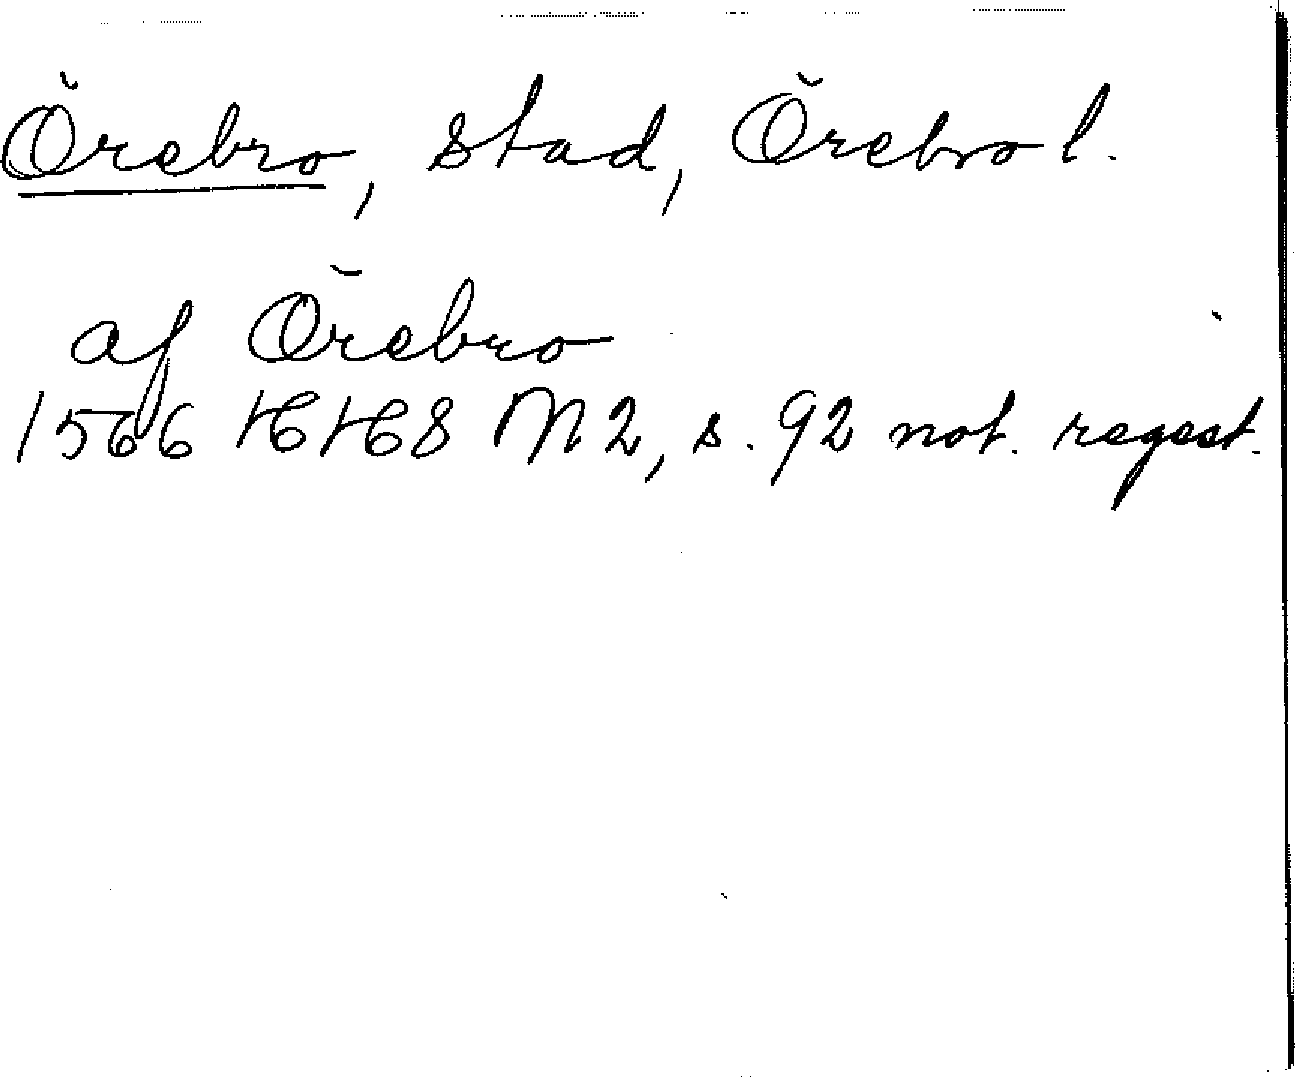 Örebro, stad, Örebro l.
af Örebro
1566 HH 8 N 2, s. 92 not. regest.